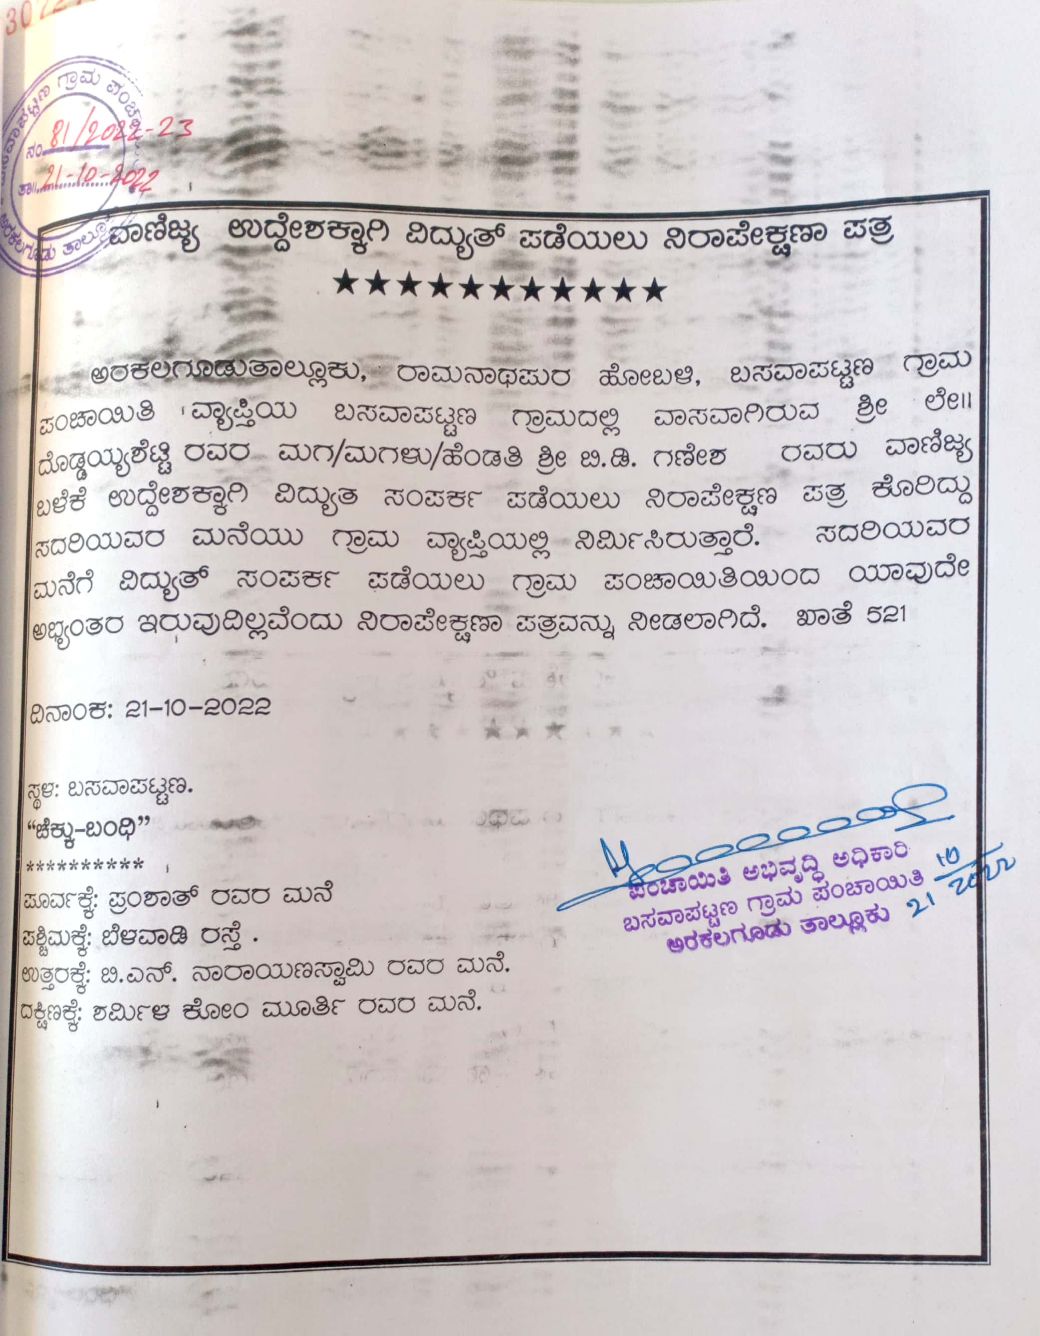 ಬಸವಾಪಟ್ಟಣ ಗ್ರಾಮ
ನಂ. 81/2022-23
ತಾ॥ 21-10-2022
ಅರಕಲಗೂಡು ತಾಲ್ಲೂಕು
ವಾಣಿಜ್ಯ ಉದ್ದೇಶಕ್ಕಾಗಿ ವಿದ್ಯುತ್ ಪಡೆಯಲು ನಿರಾಪೇಕ್ಷಣಾ ಪತ್ರ
★★★★★★★★★★★
ಅರಕಲಗೂಡುತಾಲ್ಲೂಕು, ರಾಮನಾಥಪುರ ಹೋಬಳಿ, ಬಸವಾಪಟ್ಟಣ ಗ್ರಾಮ
ಪಂಚಾಯಿತಿ ವ್ಯಾಪ್ತಿಯ ಬಸವಾಪಟ್ಟಣ ಗ್ರಾಮದಲ್ಲಿ ವಾಸವಾಗಿರುವ ಶ್ರೀ ಲೇ॥
ದೊಡ್ಡಯ್ಯಶೆಟ್ಟಿ ರವರ ಮಗ/ಮಗಳು/ಹೆಂಡತಿ ಶ್ರೀ ಬಿ.ಡಿ. ಗಣೇಶ ರವರು ವಾಣಿಜ್ಯ
ಬಳಕೆ ಉದ್ದೇಶಕ್ಕಾಗಿ ವಿದ್ಯುತ ಸಂಪರ್ಕ ಪಡೆಯಲು ನಿರಾಪೇಕ್ಷಣ ಪತ್ರ ಕೊರಿದ್ದು
ಸದರಿಯವರ ಮನೆಯು ಗ್ರಾಮ ವ್ಯಾಪ್ತಿಯಲ್ಲಿ ನಿರ್ಮಿಸಿರುತ್ತಾರೆ. ಸದರಿಯವರ
ಮನೆಗೆ ವಿದ್ಯುತ್ ಸಂಪರ್ಕ ಪಡೆಯಲು ಗ್ರಾಮ ಪಂಚಾಯಿತಿಯಿಂದ ಯಾವುದೇ
ಅಭ್ಯಂತರ ಇರುವುದಿಲ್ಲವೆಂದು ನಿರಾಪೇಕ್ಷಣಾ ಪತ್ರವನ್ನು ನೀಡಲಾಗಿದೆ. ಖಾತೆ 521
ದಿನಾಂಕ: 21-10-2022
ಸ್ಥಳ: ಬಸವಾಪಟ್ಟಣ.
“ಚೆಕ್ಕು-ಬಂಧಿ”
**********
ಪೂರ್ವಕ್ಕೆ: ಪ್ರಂಶಾತ್ ರವರ ಮನೆ
ಪಶ್ಚಿಮಕ್ಕೆ: ಬೆಳವಾಡಿ ರಸ್ತೆ .
ಉತ್ತರಕ್ಕೆ: ಬಿ.ಎನ್. ನಾರಾಯಣಸ್ವಾಮಿ ರವರ ಮನೆ.
ದಕ್ಷಿಣಕ್ಕೆ: ಶರ್ಮಿಳ ಕೋಂ ಮೂರ್ತಿ ರವರ ಮನೆ.
ಪಂಚಾಯಿತಿ ಅಭಿವೃದ್ಧಿ ಅಧಿಕಾರಿ
ಬಸವಾಪಟ್ಟಣ ಗ್ರಾಮ ಪಂಚಾಯಿತಿ
ಅರಕಲಗೂಡು ತಾಲ್ಲೂಕು
21 10 2022